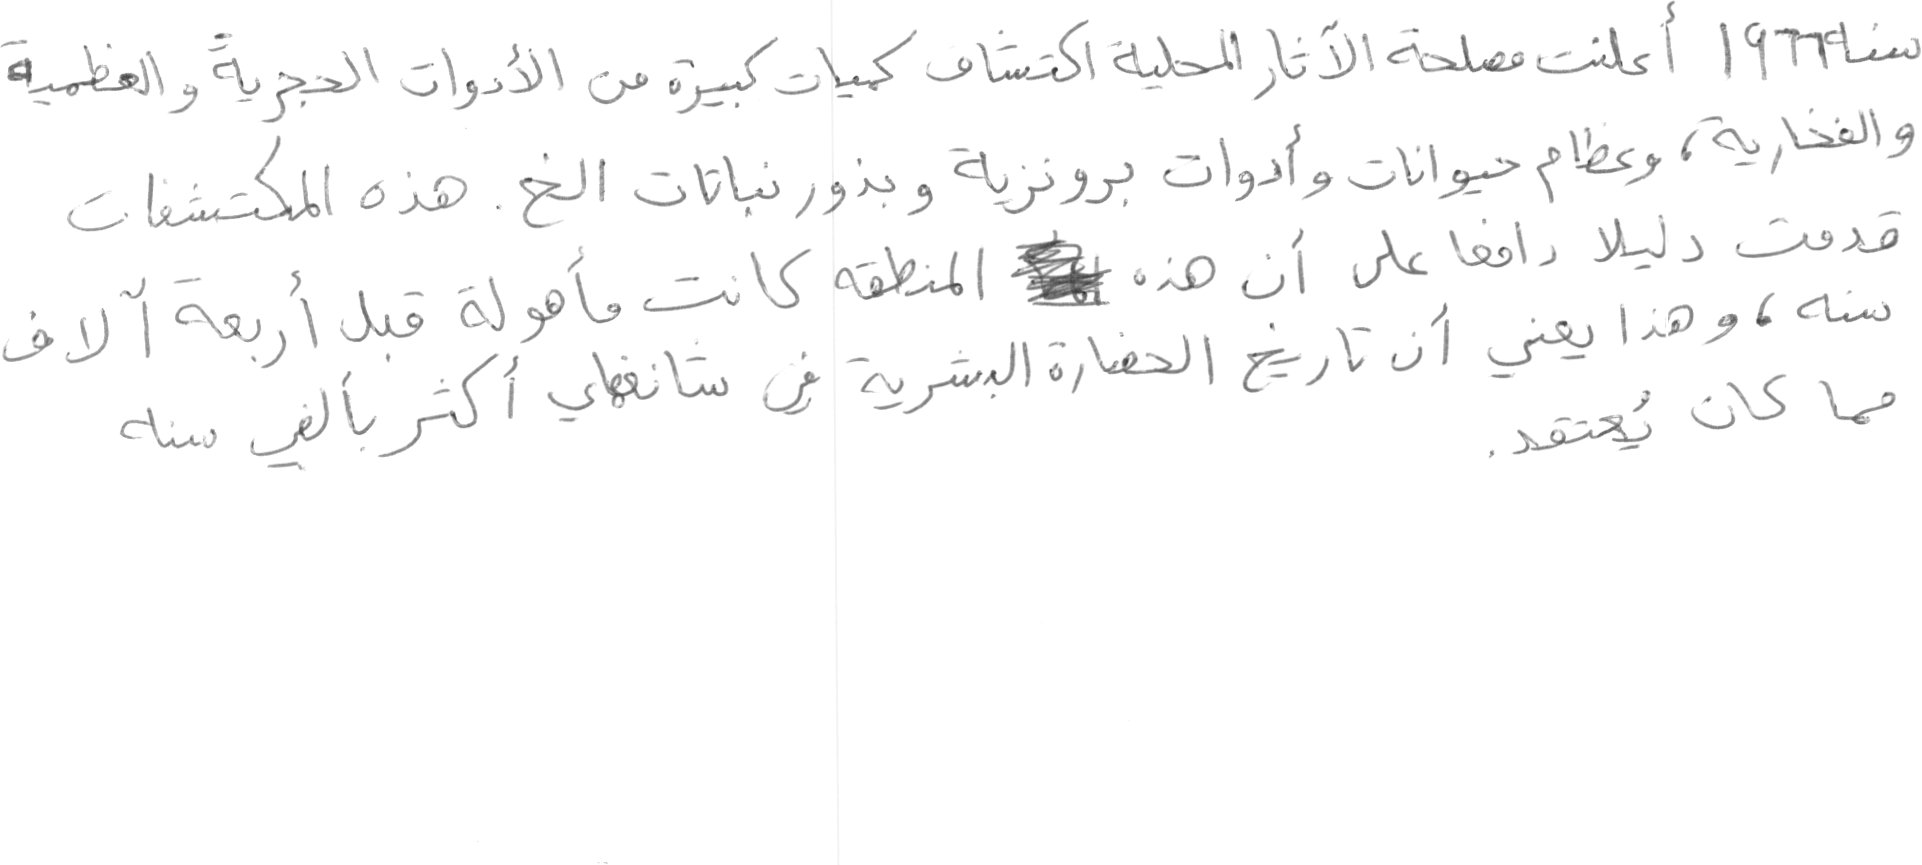 سنه ١٩٦٦ أعلنت مصلحة الآثار المحلية اكتشاف كميات كبيرة من الأدوات الحجرية والعظمية
والفخارية، وعظام حيوانات وأدوات برونزية وبذور نباتات الخ. هذه المكتشفات
قدمت دليلا دامغا على أن هذه المنطقه كانت مأهولة قبل أربعة آلاف
سنه، وهذا يعني أن تاريخ الحضارة البشرية في شانغهاي أكثر بألفي سنه
مما كان يُعتقد.